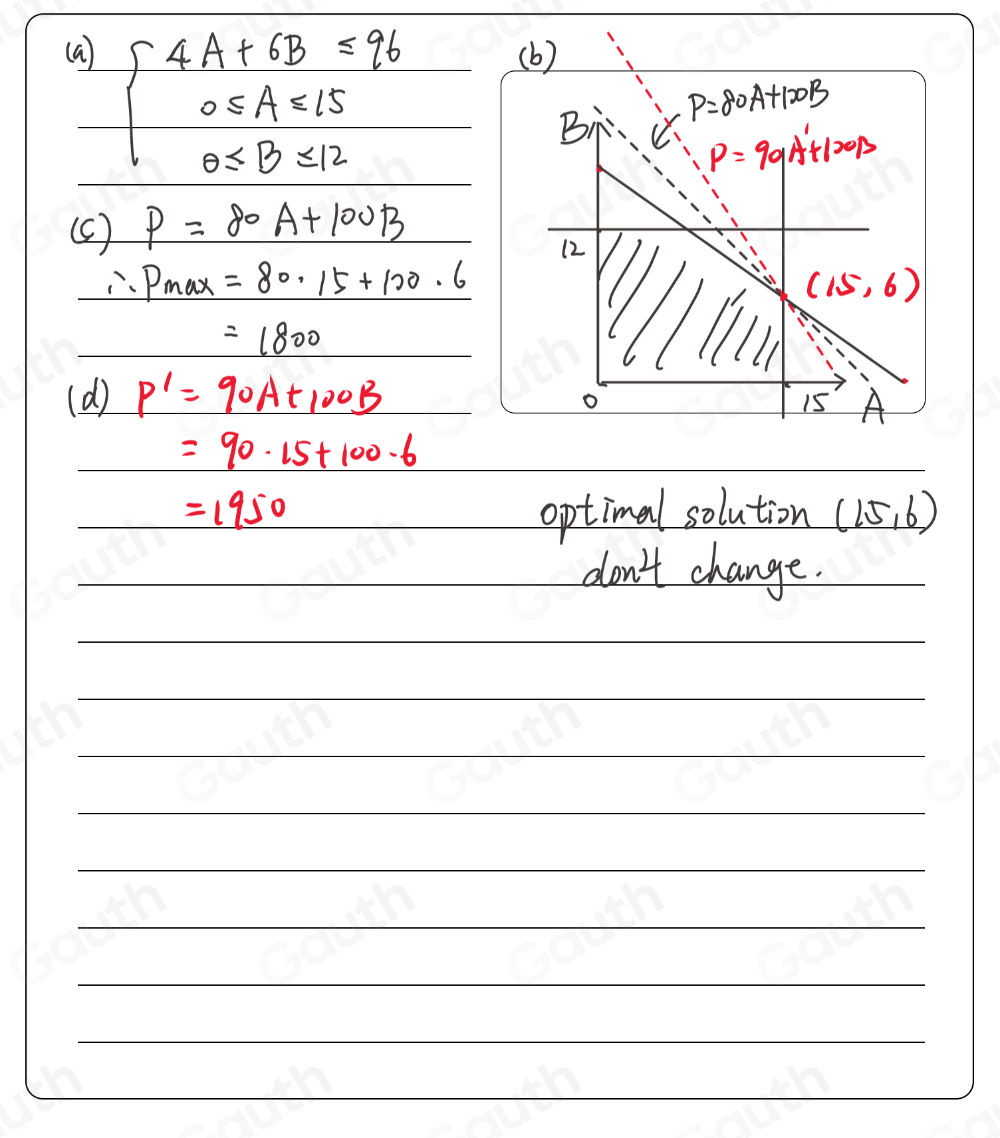 (a) { 4A + 6B ≤ 96
0 ≤ A ≤ 15
0 ≤ B ≤ 12
(b)
P=80A+100B
B
P = 90A'+100B
12
(15, 6)
0
15
A
(c) P = 80A+100B
∴ Pmax = 80·15+100·6
= 1800
(d) P' = 90A+100B
= 90·15+100·6
=1950
optimal solution (15,6)
don't change.
Gauth